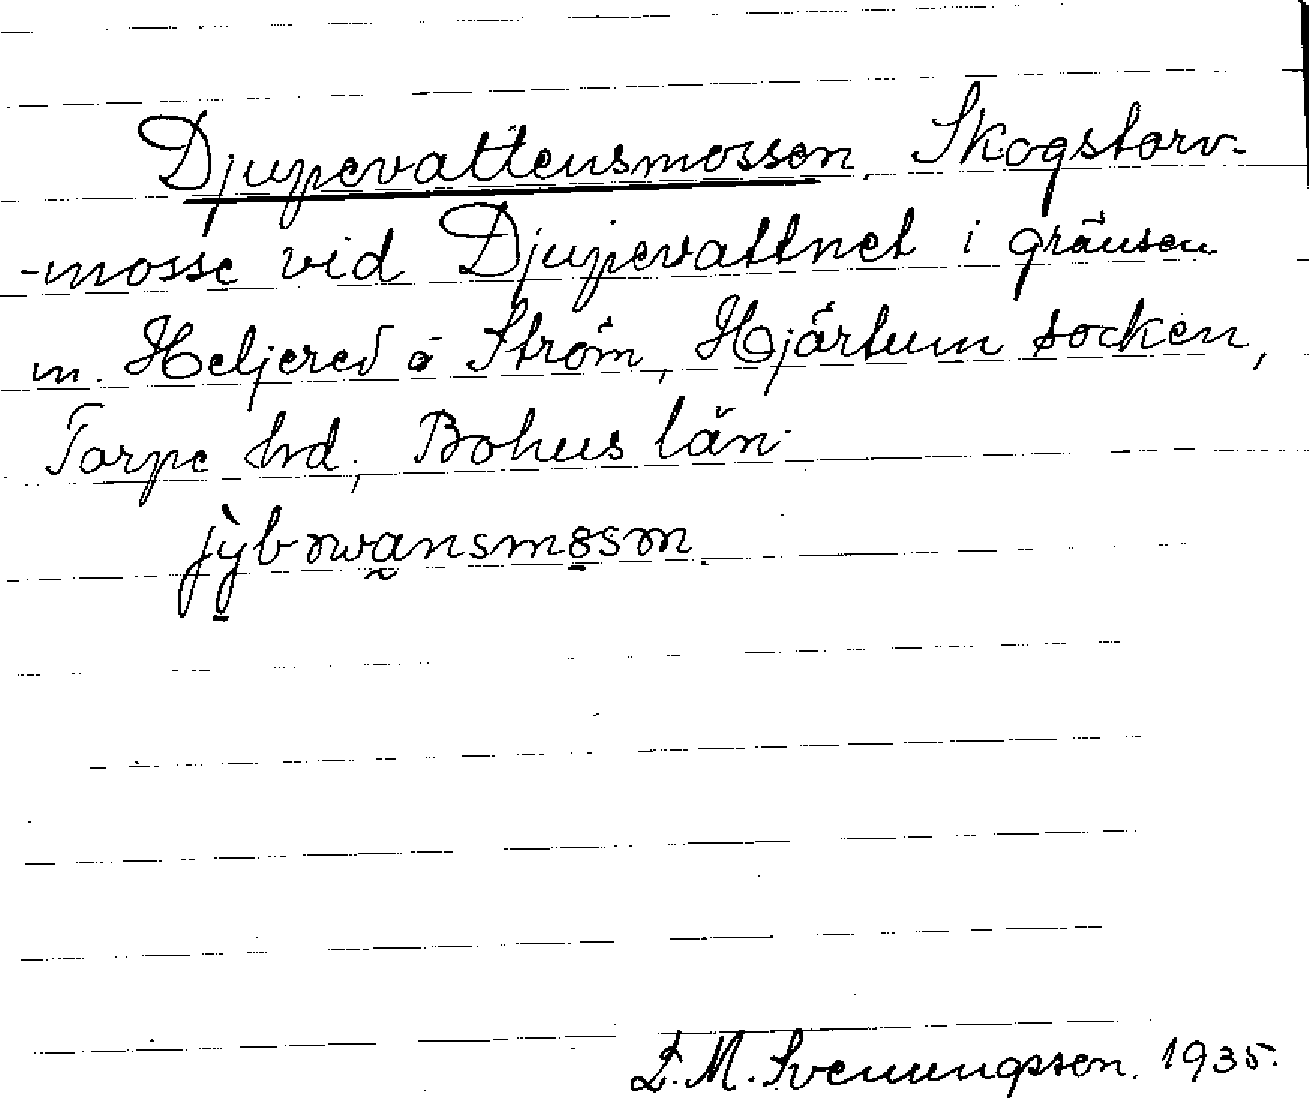 Djupevattensmossen. Skogstorv-
-mosse vid Djupevattnet i gränsen
m. Heljered o Ström, Hjärtum socken,
Torpe hd., Bohus län.
L. M. Svenungsson. 1935.